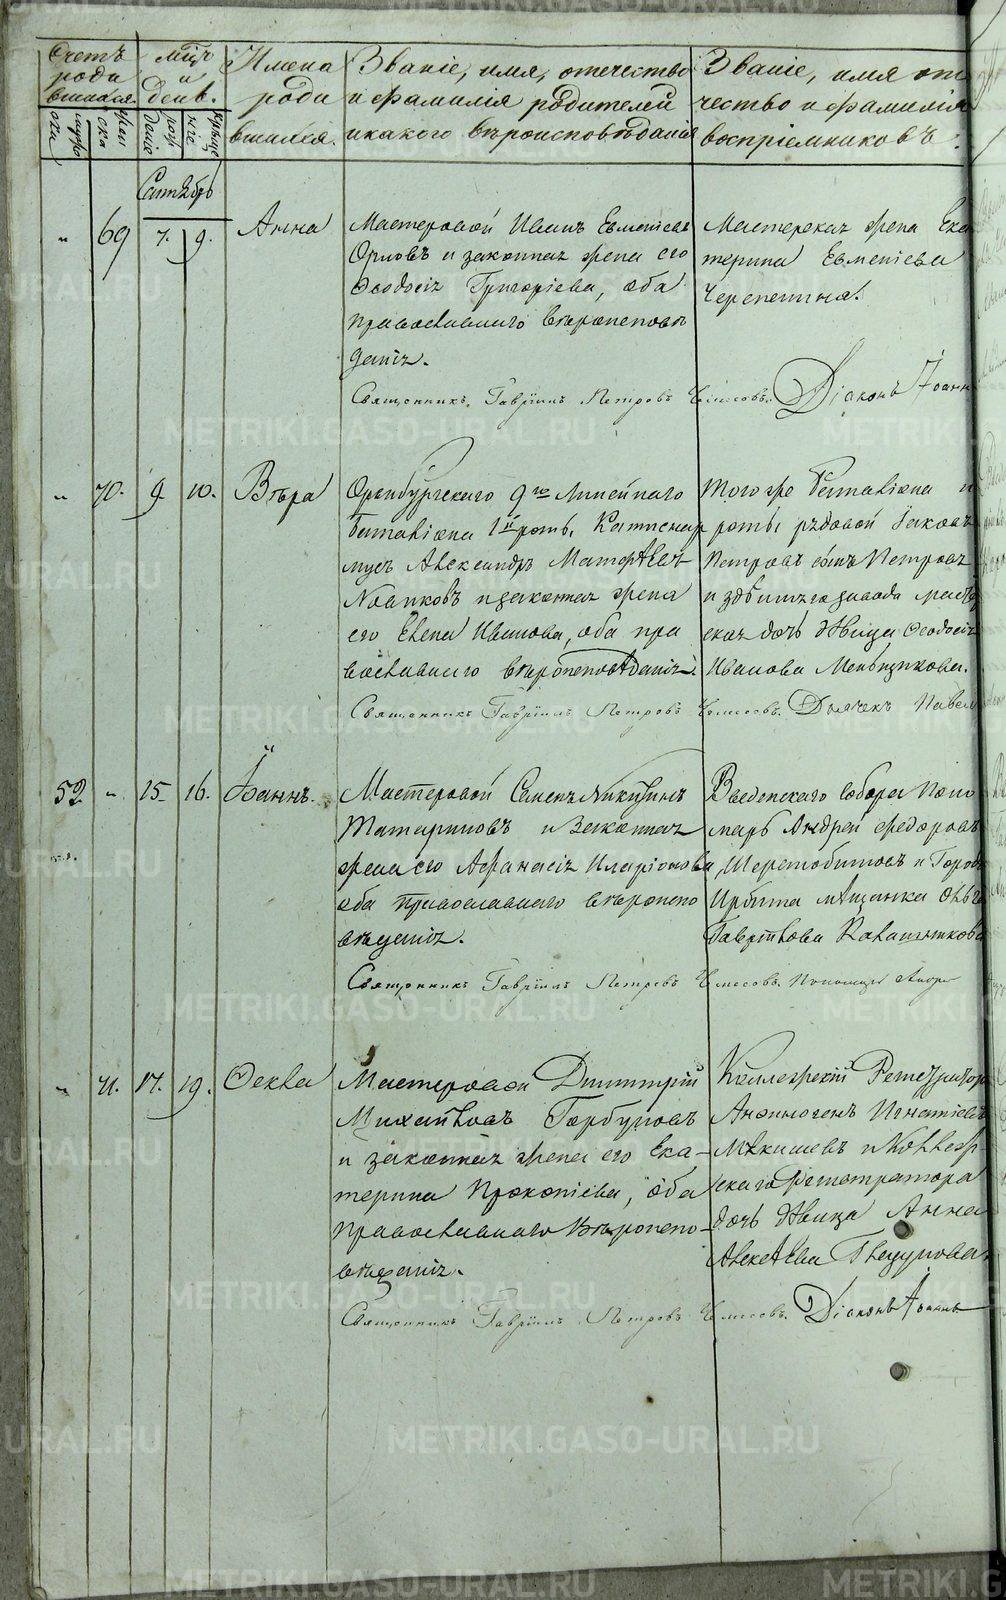 Счетъ роди вшихся.
мцъ и день.
Имена роди вшихся.
Званіе, имя, отчество и фамилія родителей и какого вѣроисповѣданія
Званіе, имя оте чество и фамилія воспріемниковъ.
Сентябрь
" 69 7. 9. Анна
Мастеровой Иванъ Евменіевъ
Орловъ и законная жена его
Ѳеодосія Григоріева, оба
православнаго вѣроисповѣ
данія.
Мастерская жена Ека
терина Евменіева
Черепенина.
Священникъ Гавріилъ Петровъ Діаконъ Іоаннъ
" 70. 9 10. Вѣра
Оренбургскаго 9го Линейнаго
баталіона 1й роты, Каптенар
мусъ Александръ Матфѣевъ
и законная жена
его Елена Иванова, оба пра
вославнаго вѣроисповѣданія.
Того же баталіона и
роты рядовой Іаковъ
Петровъ сынъ Петровъ
и завода масте
ская дочь дѣвица Ѳеодосія
Иванова Меньщикова.
Священникъ Гавріилъ Петровъ Дьячекъ Павелъ
52 " 15 16. Іоаннъ.
Мастеровой Семенъ Никитинъ
Татариновъ и Законная
жена его Афанасія Иларіонова
оба православнаго вѣроиспо
вѣданія.
Введенскаго собора Поно
марь Андрей Федоровъ
Шерстобитовъ и Города
Ирбита мѣщанка Ольга
Гаврилова Калашникова
Священникъ Гавріилъ Петровъ Пономарь Андре
" 71. 17. 19. Ѳекла
Мастеровой Димитрій
Михайловъ Горбуновъ
и законная жена его Ека-
терина Прокопіева, оба
православнаго Вѣроиспо-
вѣданія.
Коллежскій Регистраторъ
Анфиногенъ Игнатіевъ
Мѣкишевъ и Коллеж-
скаго Регистратора
дочь дѣвица Анна
Алексѣева
Священникъ Гавріилъ Петровъ Діаконъ Іоаннъ
METRIKI.GASO-URAL.RU